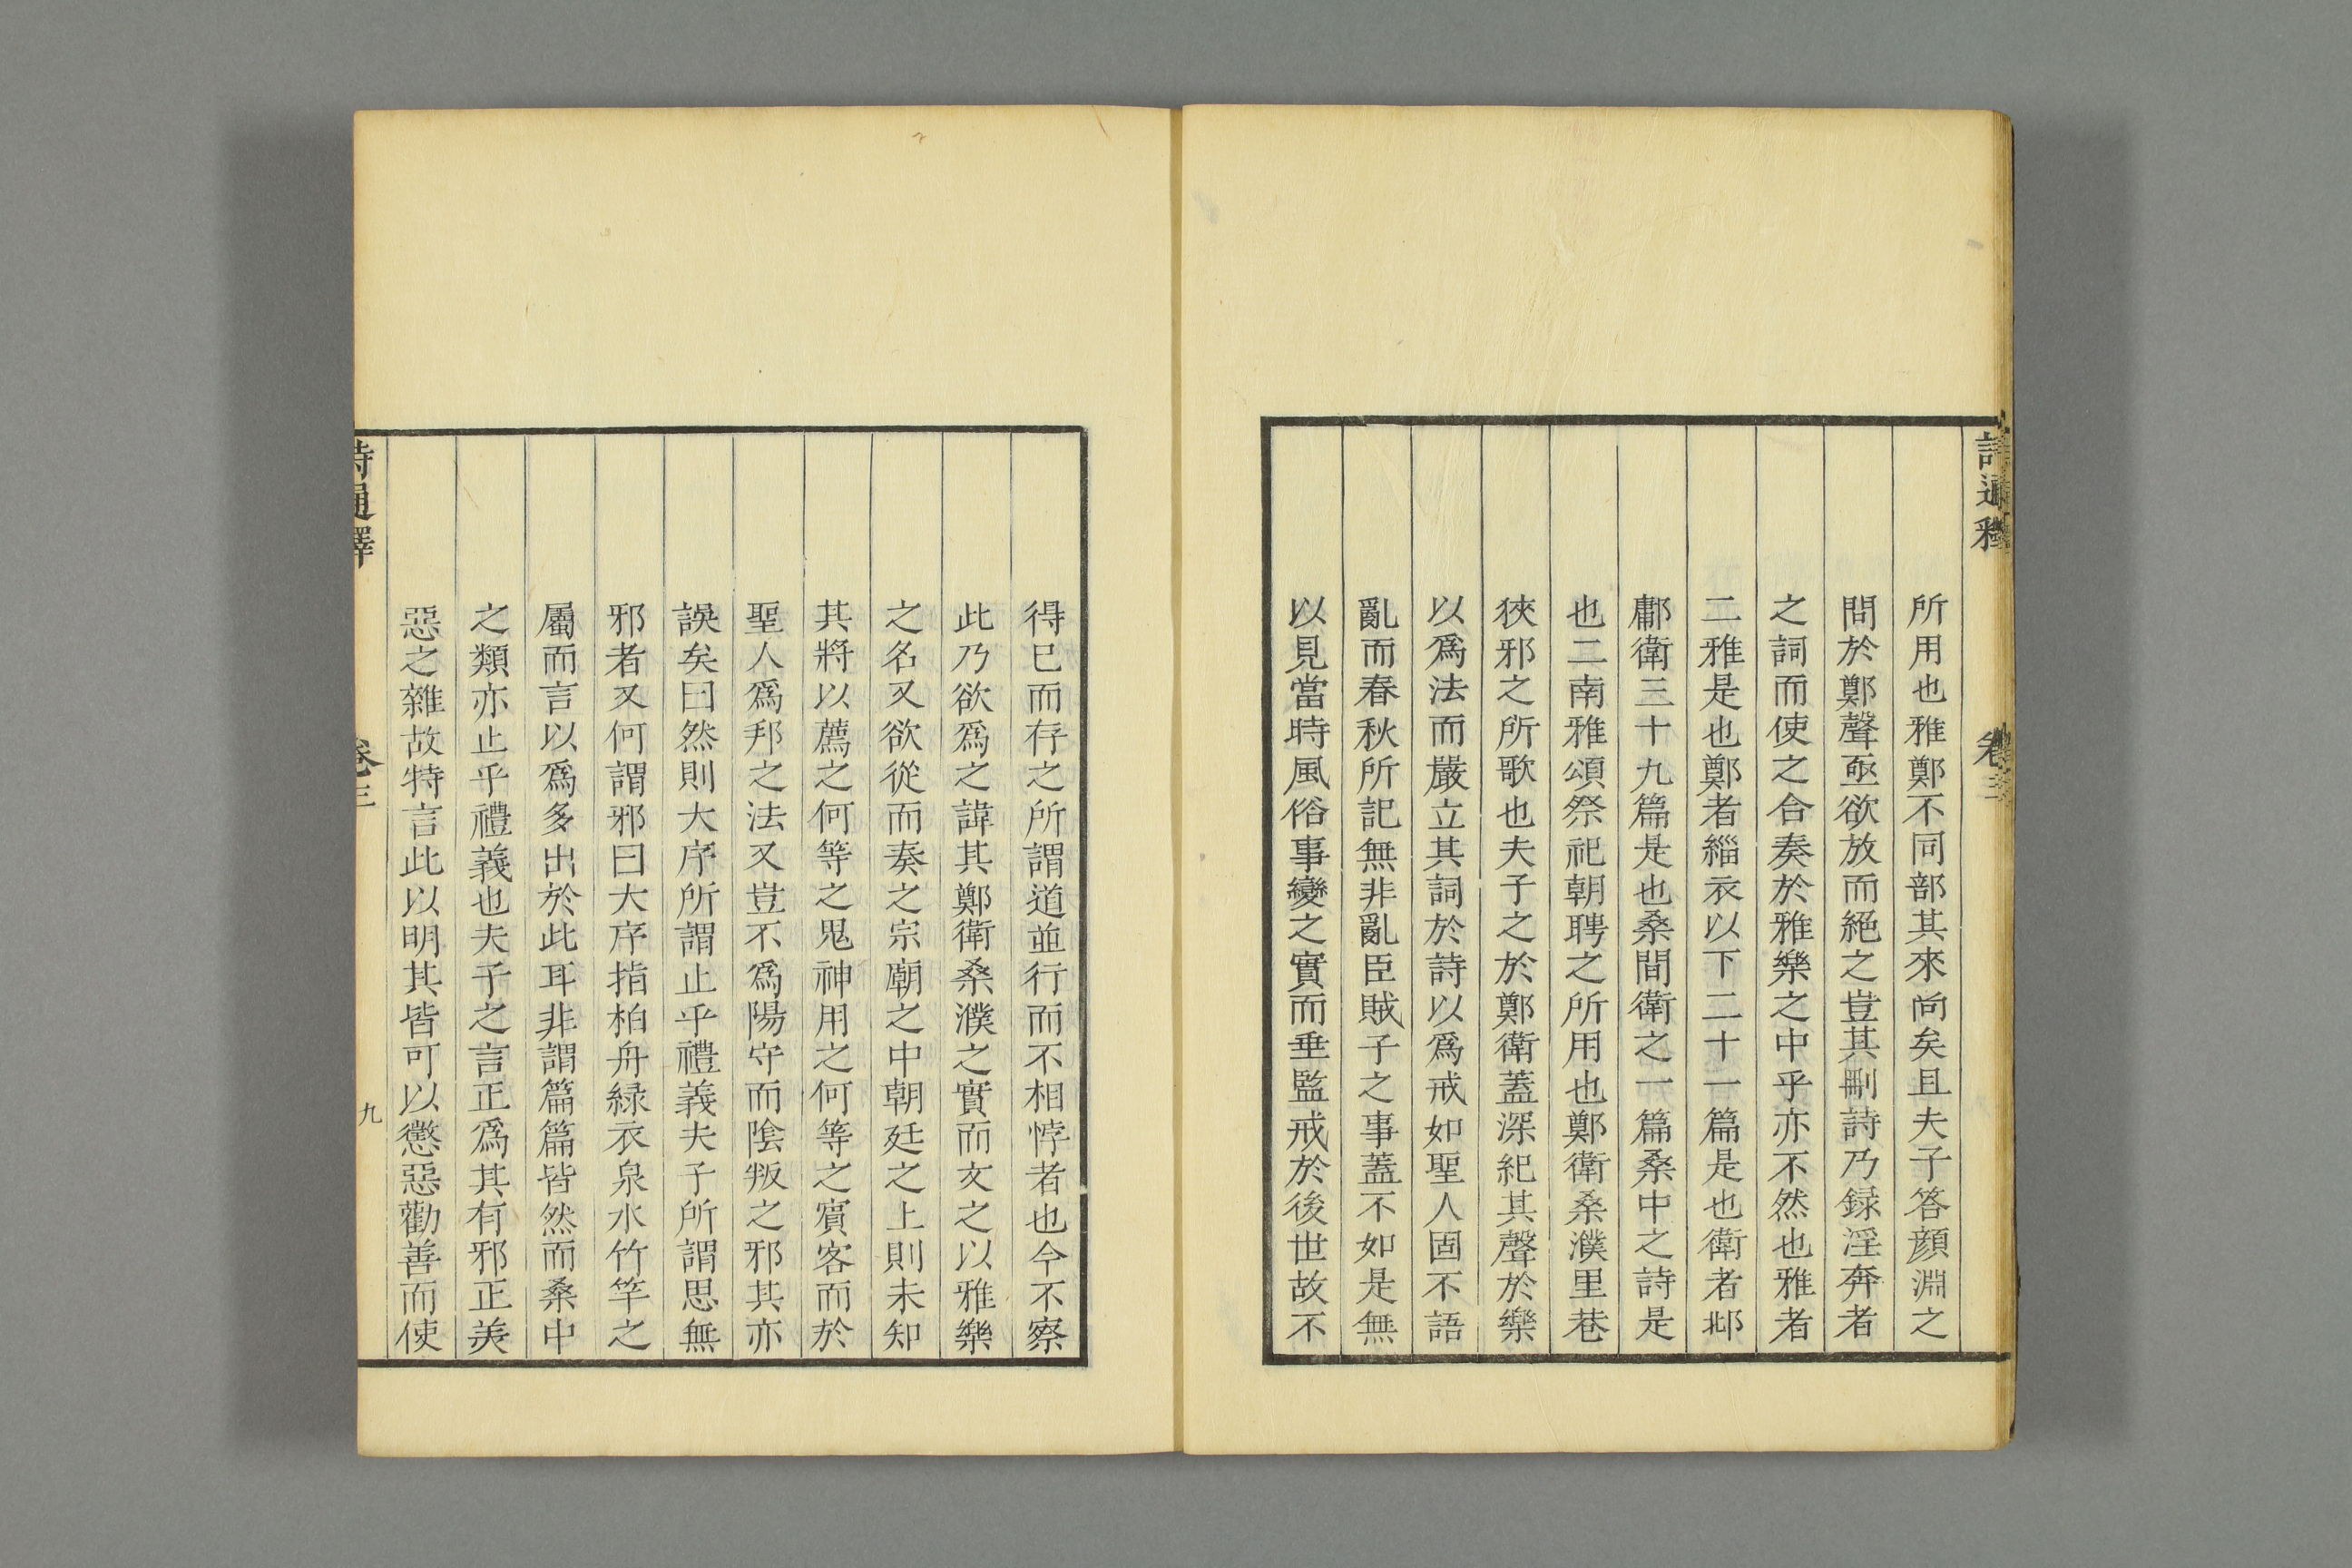 詩通釋
卷三
所用也雅鄭不同部其來尚矣且夫子答顏淵之
問於鄭聲亟欲放而絕之豈其刪詩乃録淫奔者
之詞而使之合奏於雅樂之中乎亦不然也雅者
二雅是也鄭者緇衣以下二十一篇是也衛者邶
鄘衛三十九篇是也桑間衛之一篇桑中之詩是
也二南雅頌祭祀朝聘之所用也鄭衛桑濮里巷
狹邪之所歌也夫子之於鄭衛蓋深絕其聲於樂
以爲法而嚴立其詞於詩以爲戒如聖人固不語
亂而春秋所記無非亂臣賊子之事蓋不如是無
以見當時風俗事變之實而垂監戒於後世故不
得已而存之所謂道並行而不相悖者也今不察
此乃欲爲之諱其鄭衛桑濮之實而文之以雅樂
之名又欲從而奏之宗廟之中朝廷之上則未知
其將以薦之何等之鬼神用之何等之賓客而於
聖人爲邦之法又豈不爲陽守而陰叛之邪其亦
誤矣曰然則大序所謂止乎禮義夫子所謂思無
邪者又何謂邪曰大序指柏舟緑衣泉水竹竿之
屬而言以爲多出於此耳非謂篇篇皆然而桑中
之類亦止乎禮義也夫子之言正爲其有邪正美
惡之雜故特言此以明其皆可以懲惡勸善而使
詩通釋
卷三
九